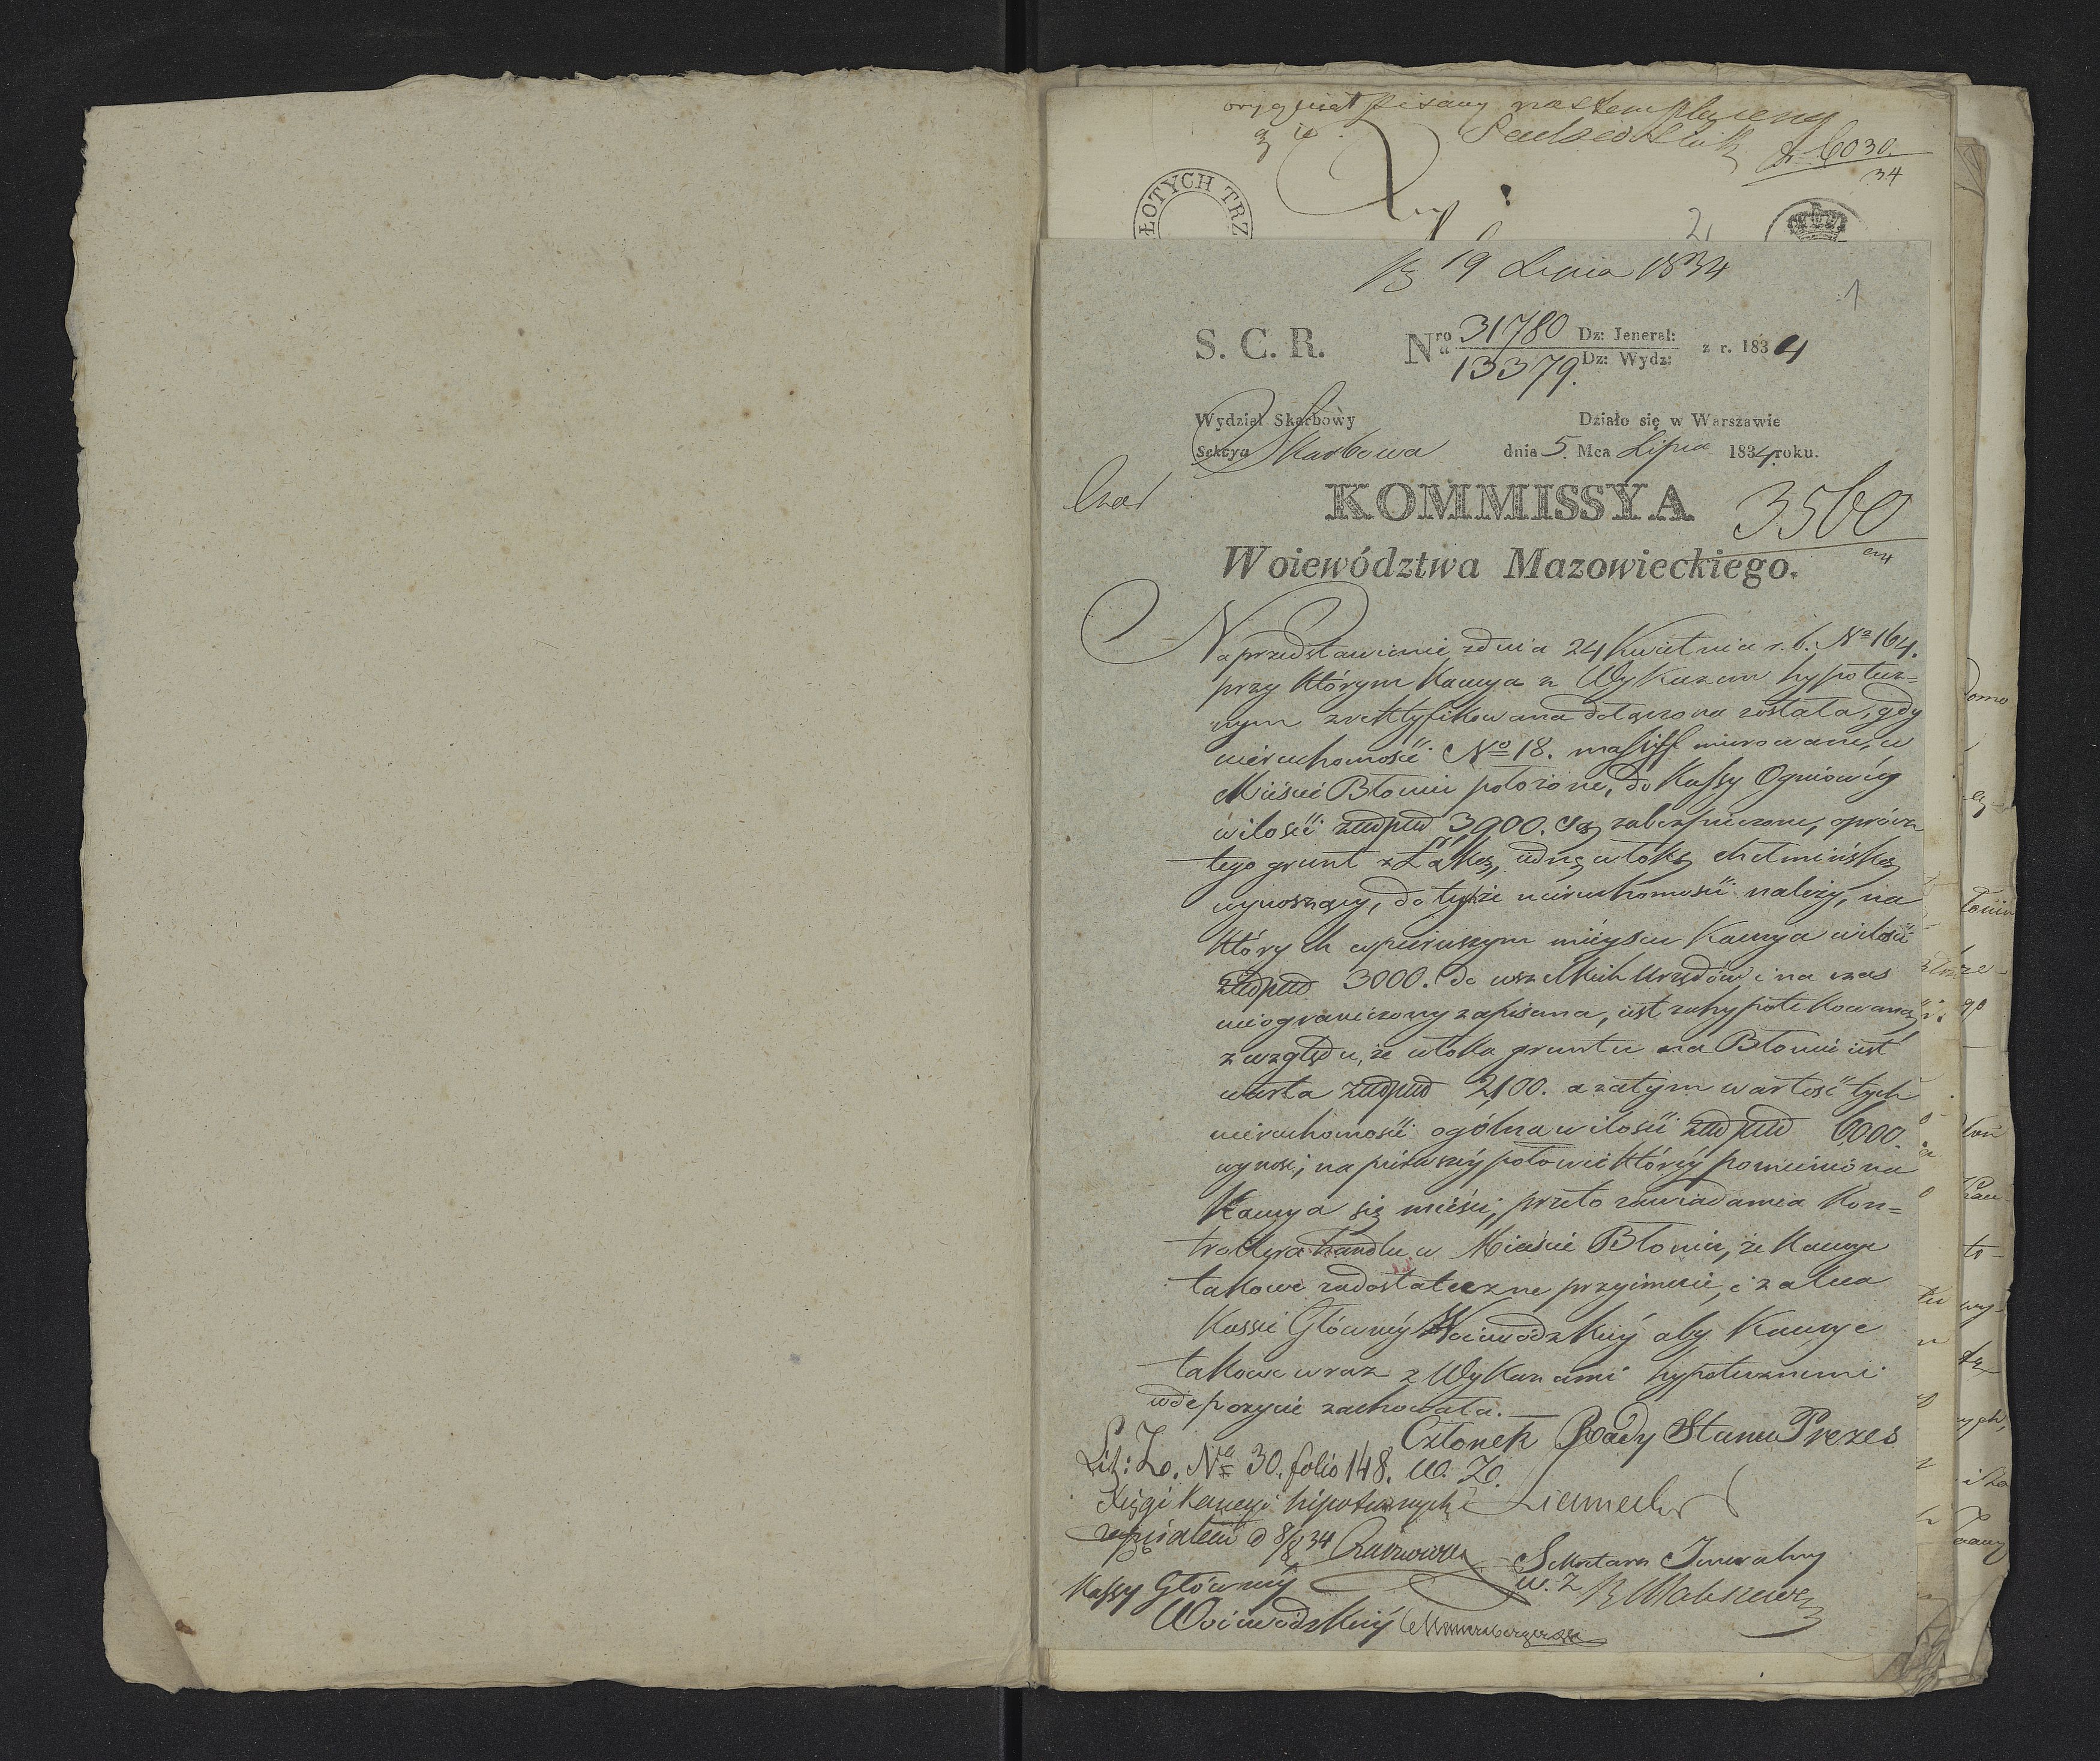 oryginał pisany na stemplu ceny
6030
34
ŁOTYCH TRZ
2
19 Lipca 1834
1
S. C. R. Nro 31780 Dz: Jeneral: z r. 1834
13379. Dz: Wydz:
Wydział Skarbowy Działo się w Warszawie
Sekcya Skarbowa dnia 5. Mca Lipca 1834 roku.
KOMMISSYA 3560
Woiewództwa Mazowieckiego.
Na przedstawienie z dnia 24 Kwietnia r. b. No 164.
przy którym Kaucya z Wykazem hypotecz=
nym zrektyfikowana dołączona została, gdy
nieruchomość No 18. massiff murowane, w
Mieście Błoniu położone, do Kassy Ogniowéy
w ilości 3,900. są zabezpieczone, oprócz
tego grunt z Łąką, iedną włokę chełmińską
wynoszący, do tyże nieruchomości należy, na
których w pierwszym mieyscu Kaucya w ilości
3000. do wszelkich Urzędów i na czas
nieograniczony zapisana, iest zahypotekowaną
z względu, że włoka gruntu na Błoniu iest
warta 2,100. a zatym wartość tych
nieruchomości ogólna w ilości 6,000.
wynosi, na pierwszéy połowie któréy pomieniona
Kaucya się mieści, przeto zawiadamia Kon=
trollera w Mieście Błoniu, że Kaucye
takowe za dostateczne przyimuie, i zaleca
Kassie Głównéy Woiewódzkiéy aby Kaucye
takowe wraz z Wykazami hypotecznemi
w depozycie zachowała.
Członek Rady Stanu Prezes
Lit: Z. No 30. folio 148. w. Z.
Księgi Kaucyi hipotecznych
zapisałem d 8/8 34
Sekretarz Jeneralny
Kassy Głównéy w. Z
Woiewódzkiéy